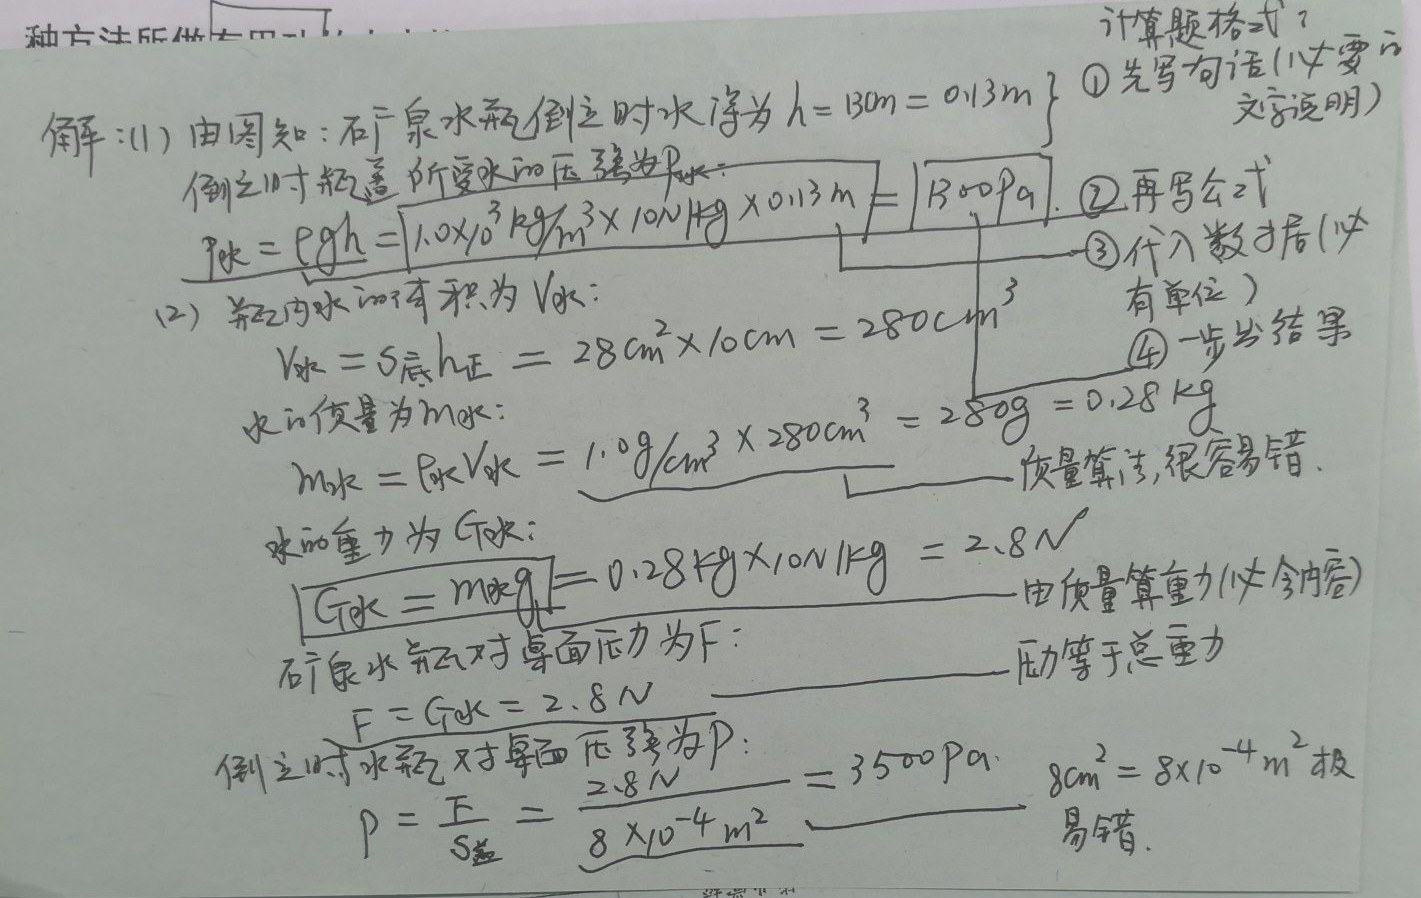 种方法所做有用功
计算题格式:
解:(1) 由图知:矿泉水瓶倒立时水深为 h = 13cm = 0.13m } ① 先写句话(必要的
文字说明)
倒立时瓶盖所受水的压强为P水:
P水 = ρgh = 1.0×10³kg/m³×10N/kg×0.13m = 1300Pa. ② 再写公式
③ 代入数据(必
有单位)
(2) 瓶内水的体积为 V水:
V水 = S底h正 = 28cm²×10cm = 280cm³
④ 一步出结果
水的质量为m水:
m水 = ρ水V水 = 1.0g/cm³×280cm³ = 280g = 0.28kg
质量算法,很容易错.
水的重力为G水:
G水 = m水g = 0.28kg×10N/kg = 2.8N
由质量算重力(必会内容)
矿泉水瓶对桌面压力为F:
F = G水 = 2.8N
压力等于总重力
倒立时水瓶对桌面压强为P:
P = F/S盖 = 2.8N/8×10⁻⁴m² = 3500Pa.
8cm² = 8×10⁻⁴m² 极
易错.